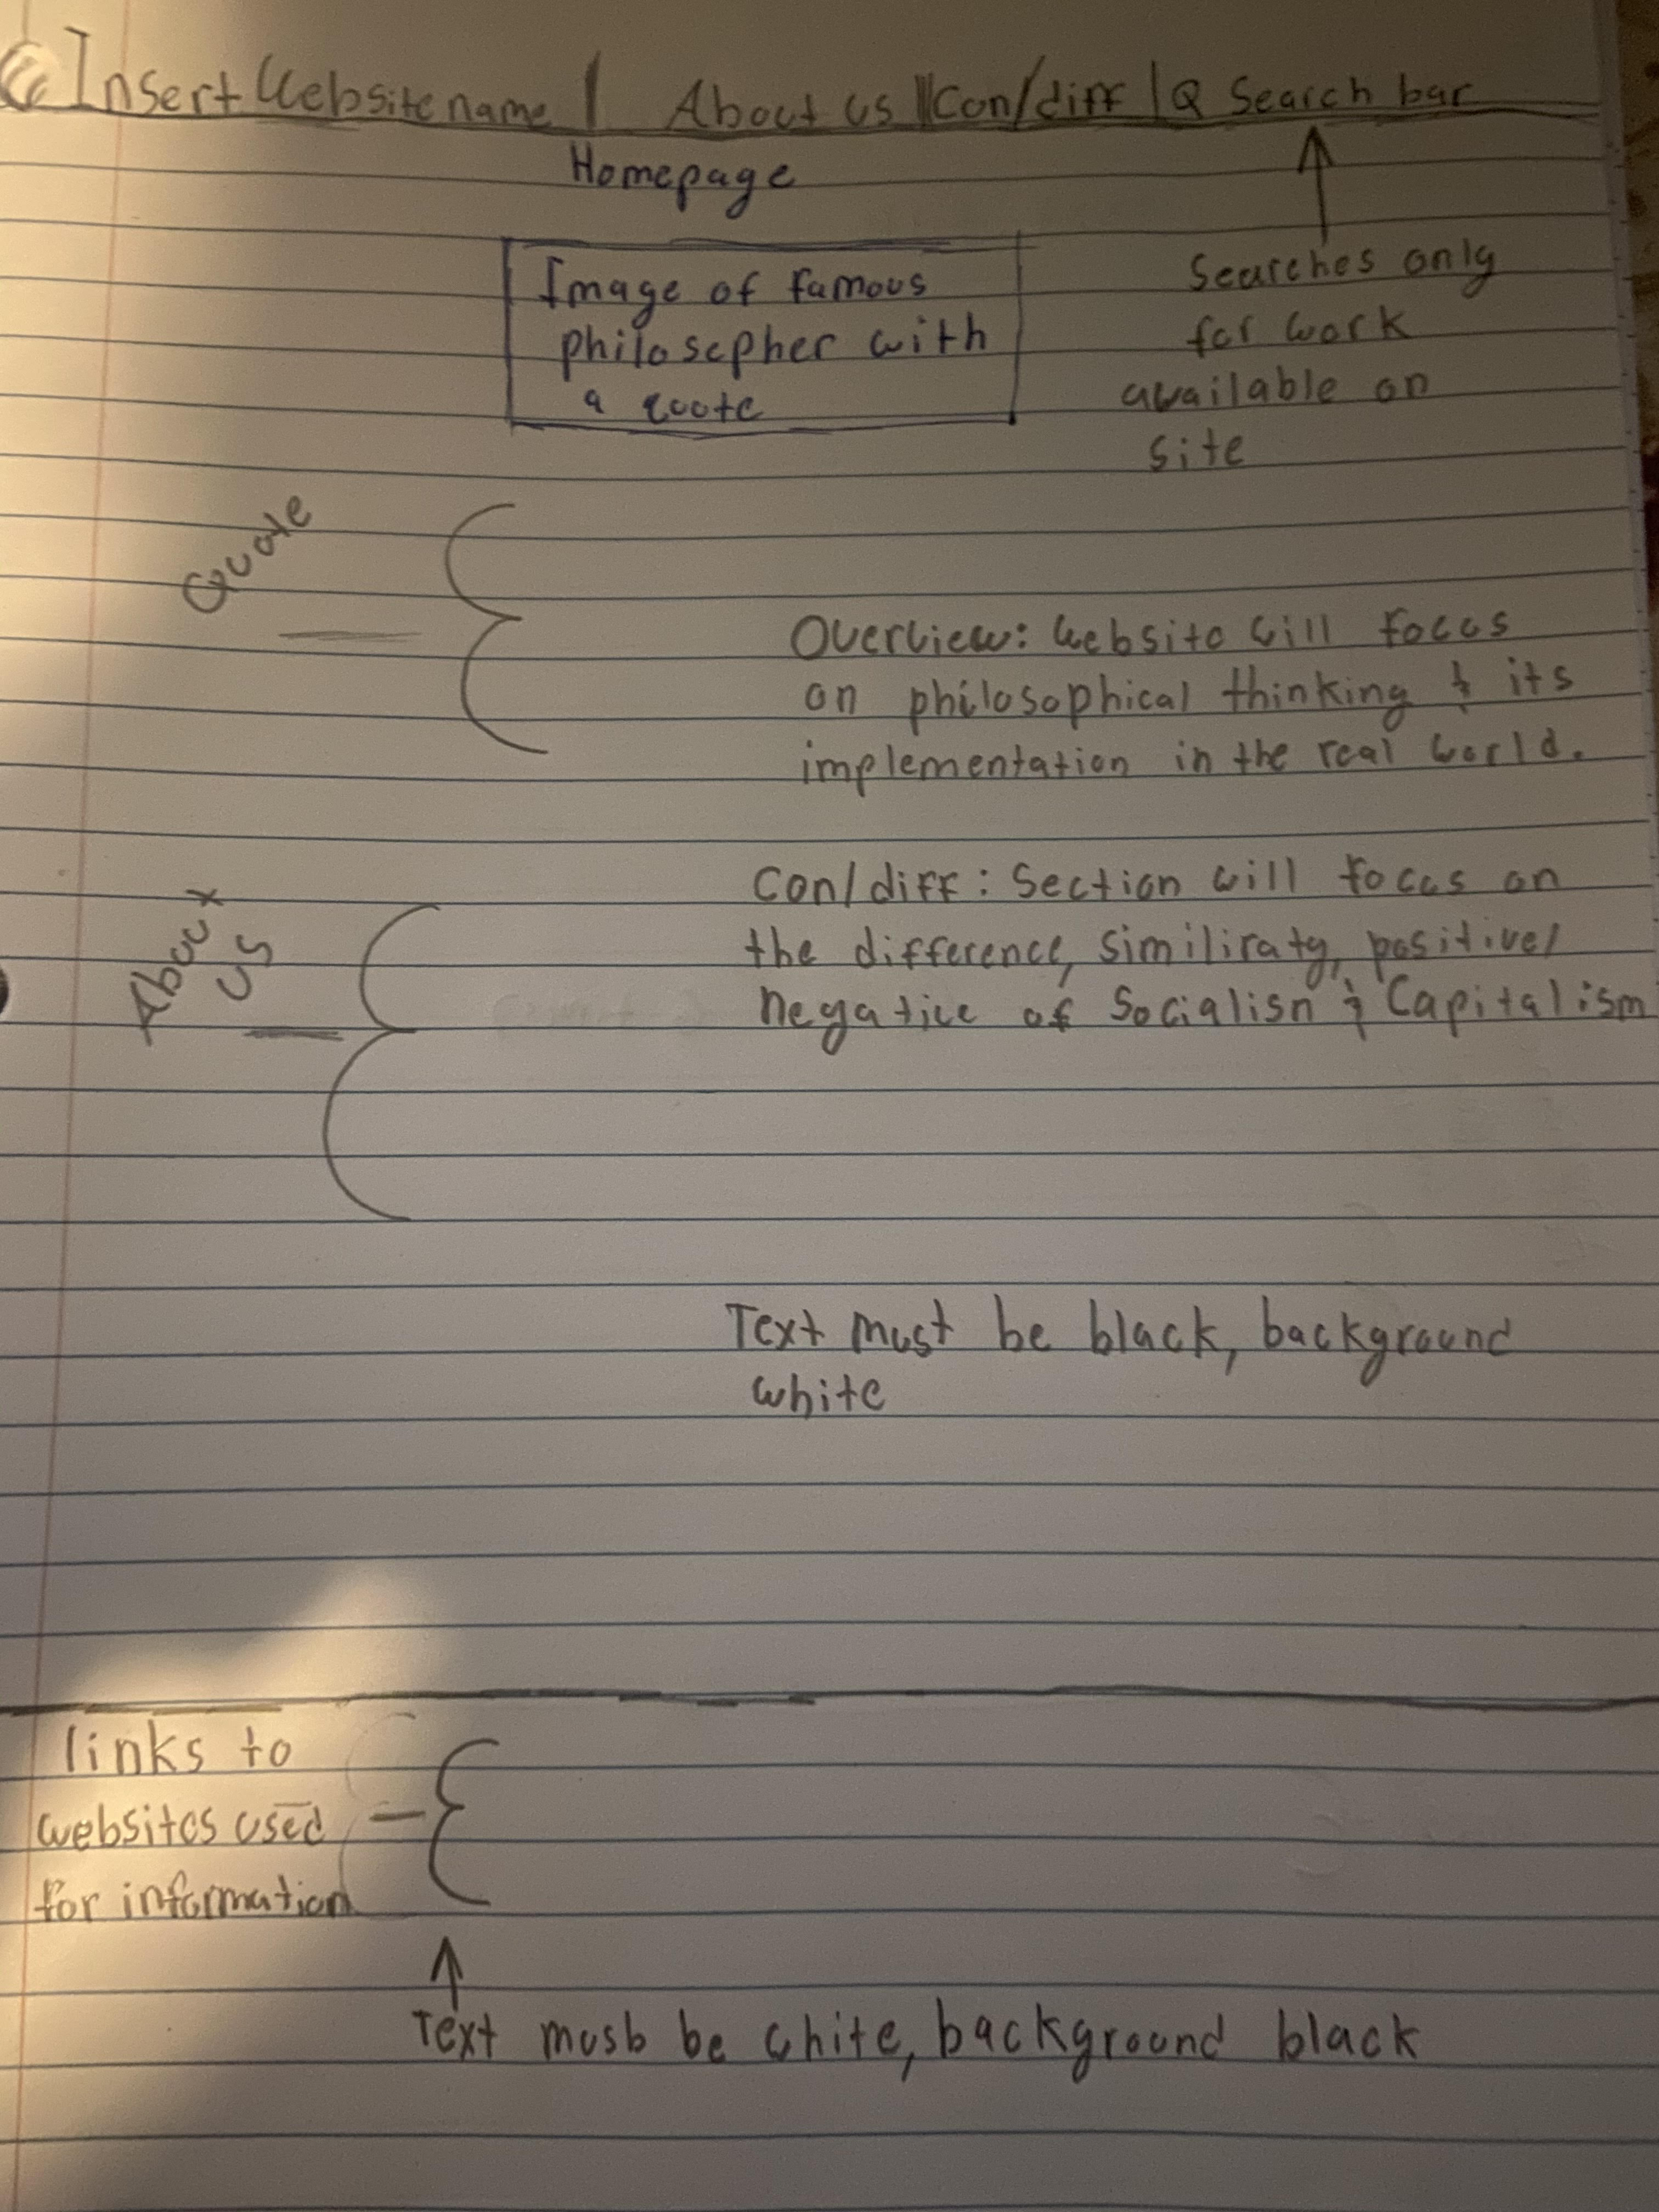 Insert Website name | About us || Con/diff | Q Search bar
Homepage
Image of famous
philosepher with
a quote
Searches only
for work
available on
site
Quote
Overview: Website will focus
on philosophical thinking & its
implementation in the real world.
Con/diff: Section will focus on
the difference, similiraty, positive/
negative of Socialism & Capitalism
About
us
Text must be black, background
white
links to
websites used
for information
Text musb be white, background black